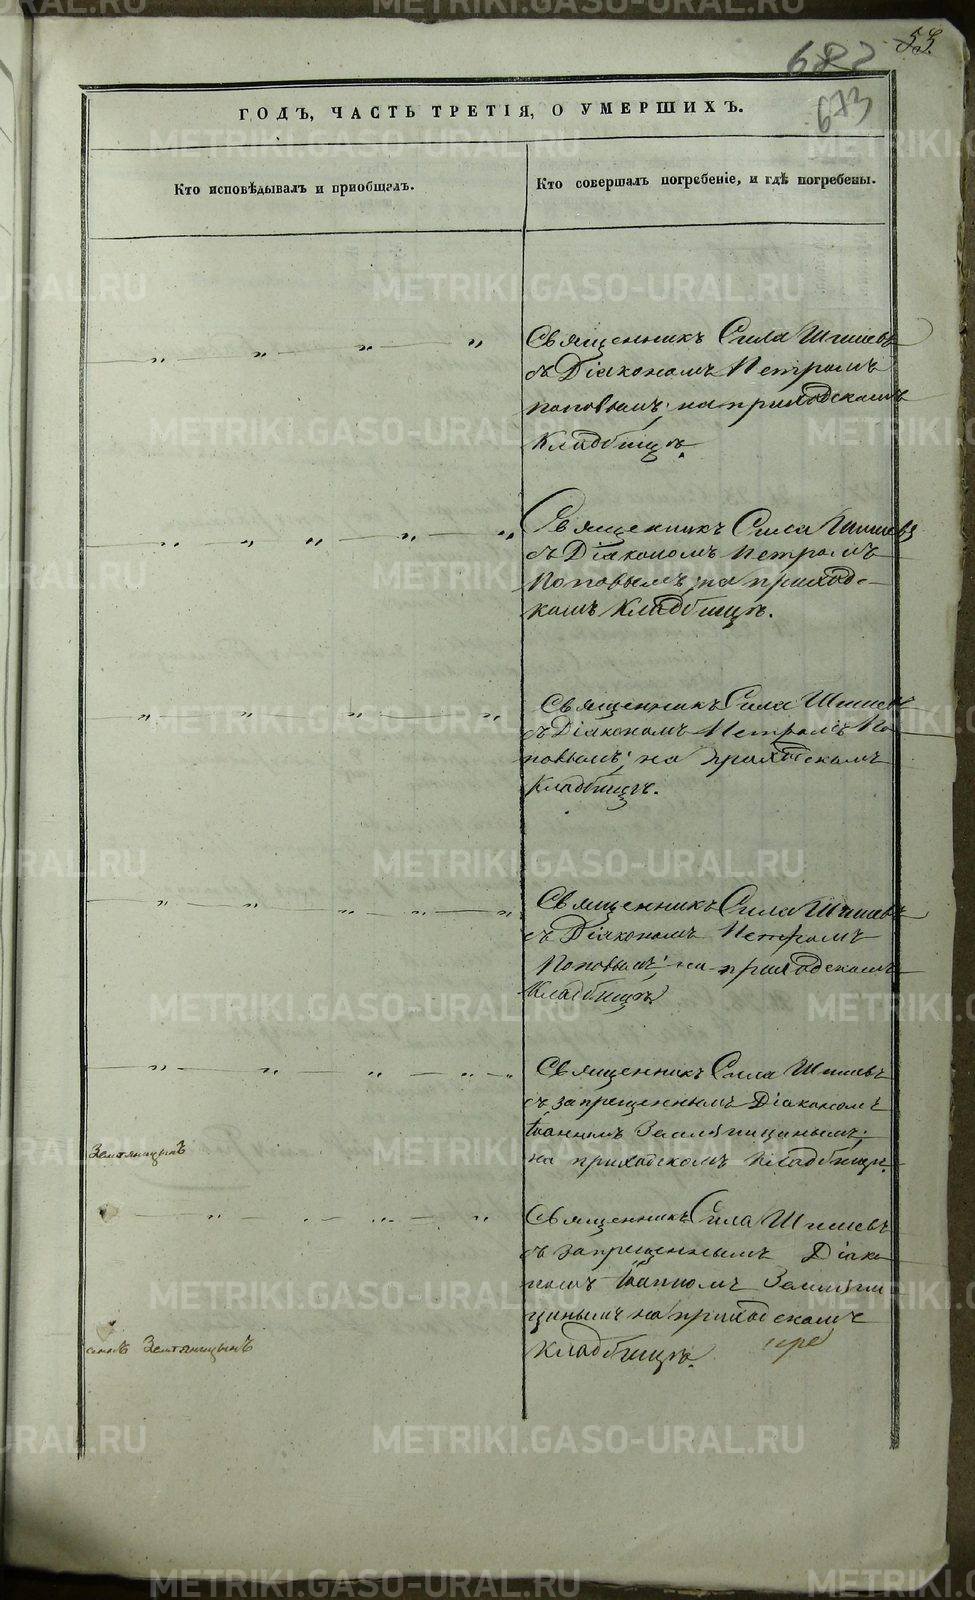 53.
682
673
ГОДЪ, ЧАСТЬ ТРЕТІЯ, О УМЕРШИХЪ.
Кто исповѣдывалъ и приобщалъ.
Кто совершалъ погребеніе, и гдѣ погребены.
Священникъ Сила Шишевъ
съ Діакономъ Петромъ
Поповымъ; на приходскомъ
Кладбищѣ.
Священникъ Сила Шишевъ
съ Діакономъ Петромъ
Поповымъ; на приход-
комъ Кладбищѣ.
Священникъ Сила Шишевъ
съ Діакономъ Петромъ По
повымъ; на приходскомъ
Кладбищѣ.
Священникъ Сила Шишевъ
съ Діакономъ Петромъ
Поповымъ; на приходскомъ
Кладбищѣ
Священникъ Сила Шишевъ
съ запрещеннымъ Діакономъ
Іоанномъ Земляницинымъ;
на приходскомъ Кладбищѣ.
Земляницынъ
Священникъ Сила Шишевъ
съ запрещеннымъ Діако
номъ Іоанномъ Земляни
цинымъ на приходскомъ
Кладбищѣ.
Земляницынъ
METRIKI.GASO-URAL.RU